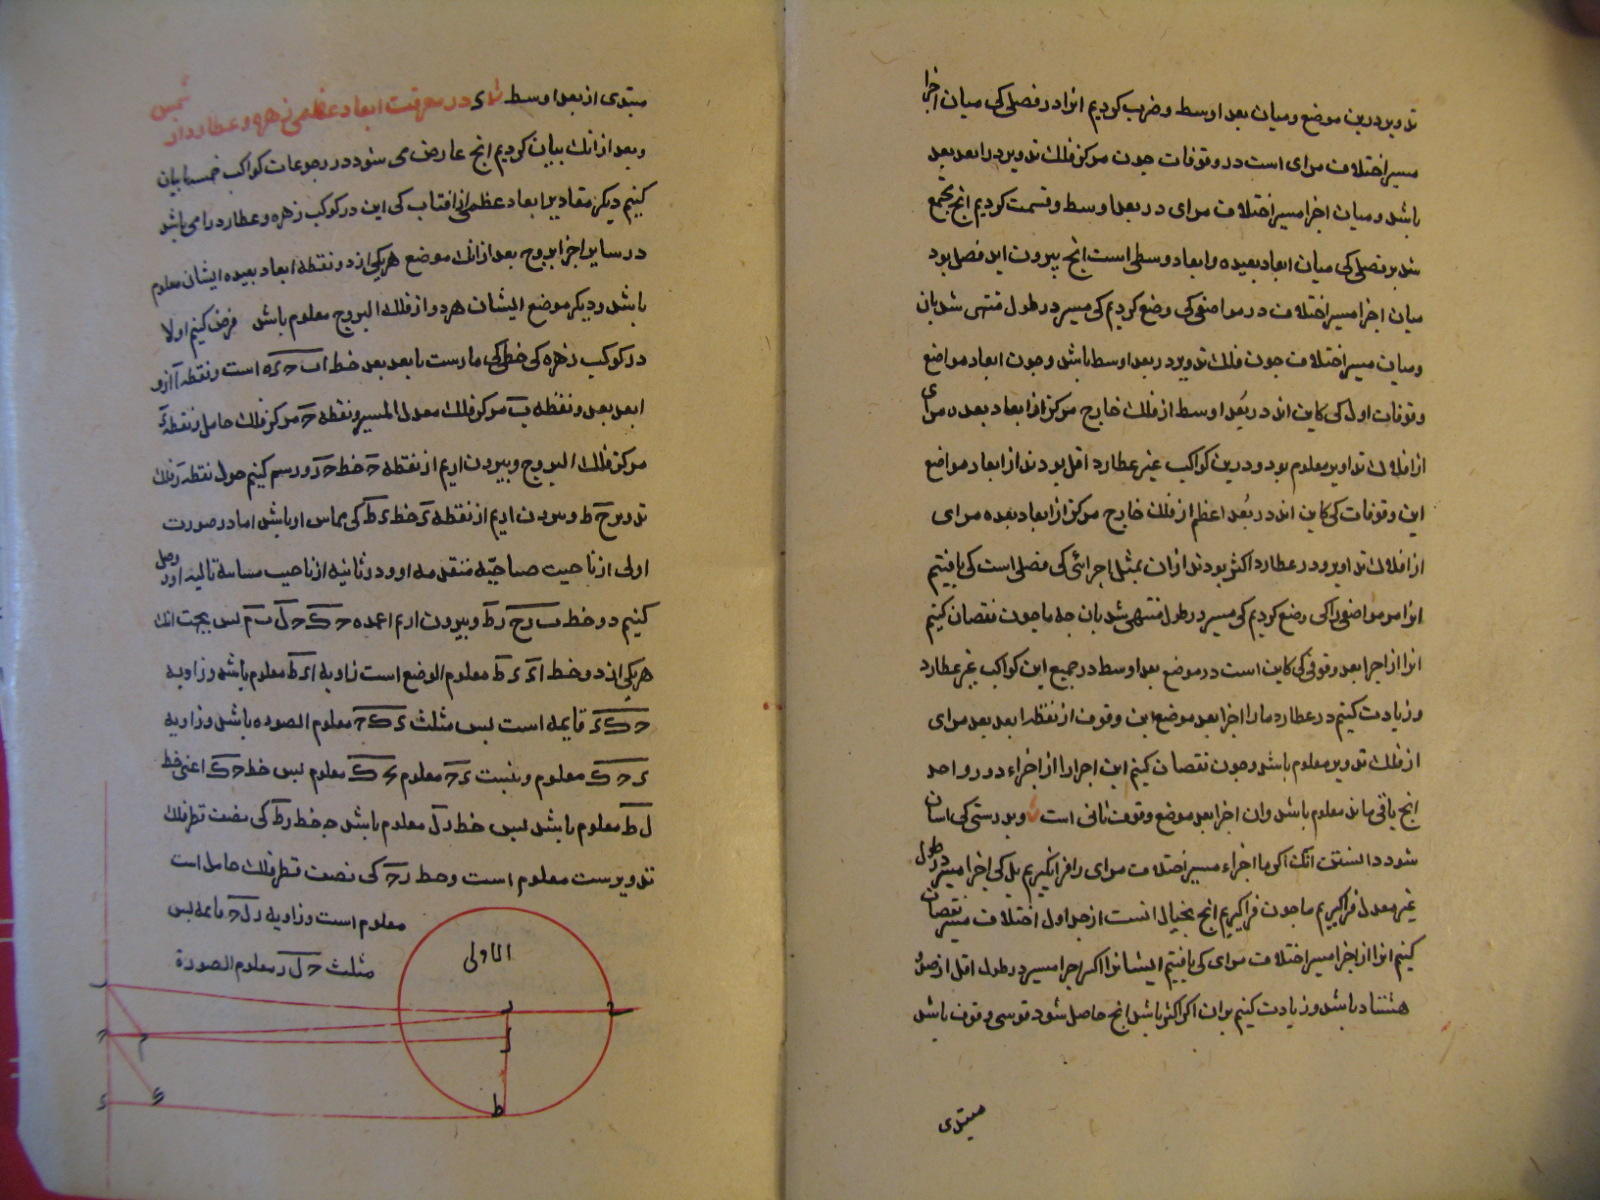 تدویر درین موضع و میان بعد اوسط و ضرب کردیم انرا در فصلی کی میان اجزا
مسیر اختلاف مرای است در وقوفات جون مرکز فلك تدویر در ابعد بعد
باشد و میان اجزا مسیر اختلاف مرای در بعد اوسط و قسمت کردیم انج مجتمع
شد بر فصلی کی میان ابعاد بعیده و ابعاد وسطی است انج بیرون اید فصل بود
میان اجزا مسیر اختلاف در مواضعی کی وضع کردیم کی مسیر در طول منتهی شد بان
و میان مسیر اختلاف جون فلك تدویر در بعد اوسط باشد و جون ابعاد مواضع
وقوفات اول کی کاین اند در بُعد اوسط از فلك خارج مرکز از ابعاد بعده مرای
از افلاك تداویر معلوم بود و درین کواکب غیر عطارد اقل بودند از ابعاد مواضع
این وقوفات کی کاین اند در بُعد اعظم از فلك خارج مرکز از ابعاد بعده مرای
از افلاك تداویر و در عطارد اکثر بودند ازان بمثل اجزائی کی فصلی است کی یافتیم
انرا مر مواضعی را کی وضع کردیم کی مسیر در طول منتهی شد بان جه ما جون نقصان کنیم
انرا از اجزا بعد وقوفی کی کاین است در موضع بعد اوسط در جمیع این کواکب غیر عطارد
و زیادت کنیم در عطارد ما را اجزا بعد موضع این وقوف از نقطه ابعد بعد مرای
از فلك تدویر معلوم باشد و جون نقصان کنیم این اجزا را از اجزاء دور واحد
انج باقی ماند معلوم باشد وان اجزا بعد موضع وقوف ثانی است و بدرستی کی اسان
شود دانستن انك اکر ما اجزاء مسیر اختلاف مرای را فرا نکیریم بل کی اجزا مسیر در طول
غیر معدل فراکیریم ما جون فراکیریم انج بحیال انست از جداول اختلاف مسیر نقصان
کنیم انرا از اجزا مسیر اختلاف مرای کی یافتیم ایشانرا اکر اجزا مسیر در طول اقل از
هشتاد باشد و زیادت کنیم بران اکر اکثر باشد انج حاصل شود قوسی وقوف باشد
مبتدی
مبتدی از بعد اوسط در معرفت ابعاد عظمی زهره و عطارد از شمس
و بعد از انك بیان کردیم انج عارض می شود در رجوعات کواکب خمسه بیان
کنیم دیکر مقادیر ابعاد عظمی از افتاب کی این دو کوکب زهره و عطارد را می باشد
در سایر اجزا بروج بعد از انك موضع هر یکی از دو نقطه ابعاد بعیده ایشان معلوم
باشد و دیکر موضع ایشان هر دو از فلك البروج معلوم باشد فرض کنیم اولا
در کوکب زهره کی خطی کی مارست بابعد بعد خط اب حء است و نقطه ا ازو
ابعد بعد و نقطه ب مرکز فلك معدل المسیر و نقطه ح مرکز فلك حامل و نقطه ء
مرکز فلك البروج و بیرون اریم از نقطه ح خط ح ر و رسم کنیم حول نقطه ر فلك
تدویر ح ط و بیرون اریم از نقطه ء خط ء ط کی مماس او باشد اما در صورت
اولی از ناحیت صباحیه متقدمه او و در ثانیه از ناحیت مسایه تالیه او و وصل
کنیم دو خط ب ر ح ر ط و بیرون اریم اعمده ح ك ح ل ب م بس بجهت انك
هر یکی از دو خط ا ء ء ط معلوم الوضع است زاویه ا ء ط معلوم باشد و زاویه
ح ك ء قایمه است بس مثلث ء ك ح معلوم الصوره باشد و زاویه
ء ح ك معلوم و نسبت ء ح معلوم ء ك معلوم بس خط ح ك اعنی خط
ل ط معلوم باشد بس خط ر ل معلوم باشد جه خط ر ط کی نصف قطر فلك
تدویرست معلوم است و خط ر ح کی نصف قطر فلك حامل است
معلوم است و زاویه ر ل ح قایمه بس
مثلث ح ل ر معلوم الصورة
الاولی
ب
ر
ح
ح
م
ل
ك
ء
ط